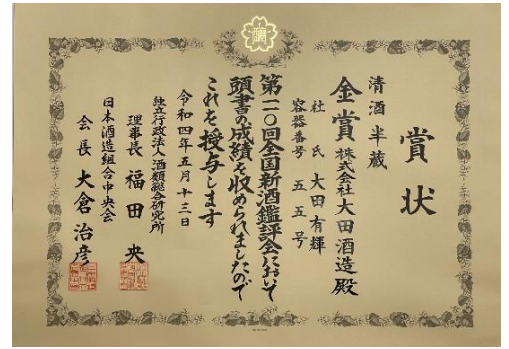 賞状
清酒 半蔵
金賞 株式会社大田酒造殿
社氏 大田有輝
容器番号 五五号
第一一〇回全国新酒鑑評会において
頭書の成績を収められましたので
これを授与します
令和四年五月十三日
独立行政法人酒類総合研究所
理事長 福田 央
日本酒造組合中央会
会長 大倉治彦